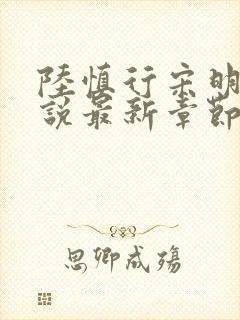 陸慎行宋明
說最新章節
思卿成殤